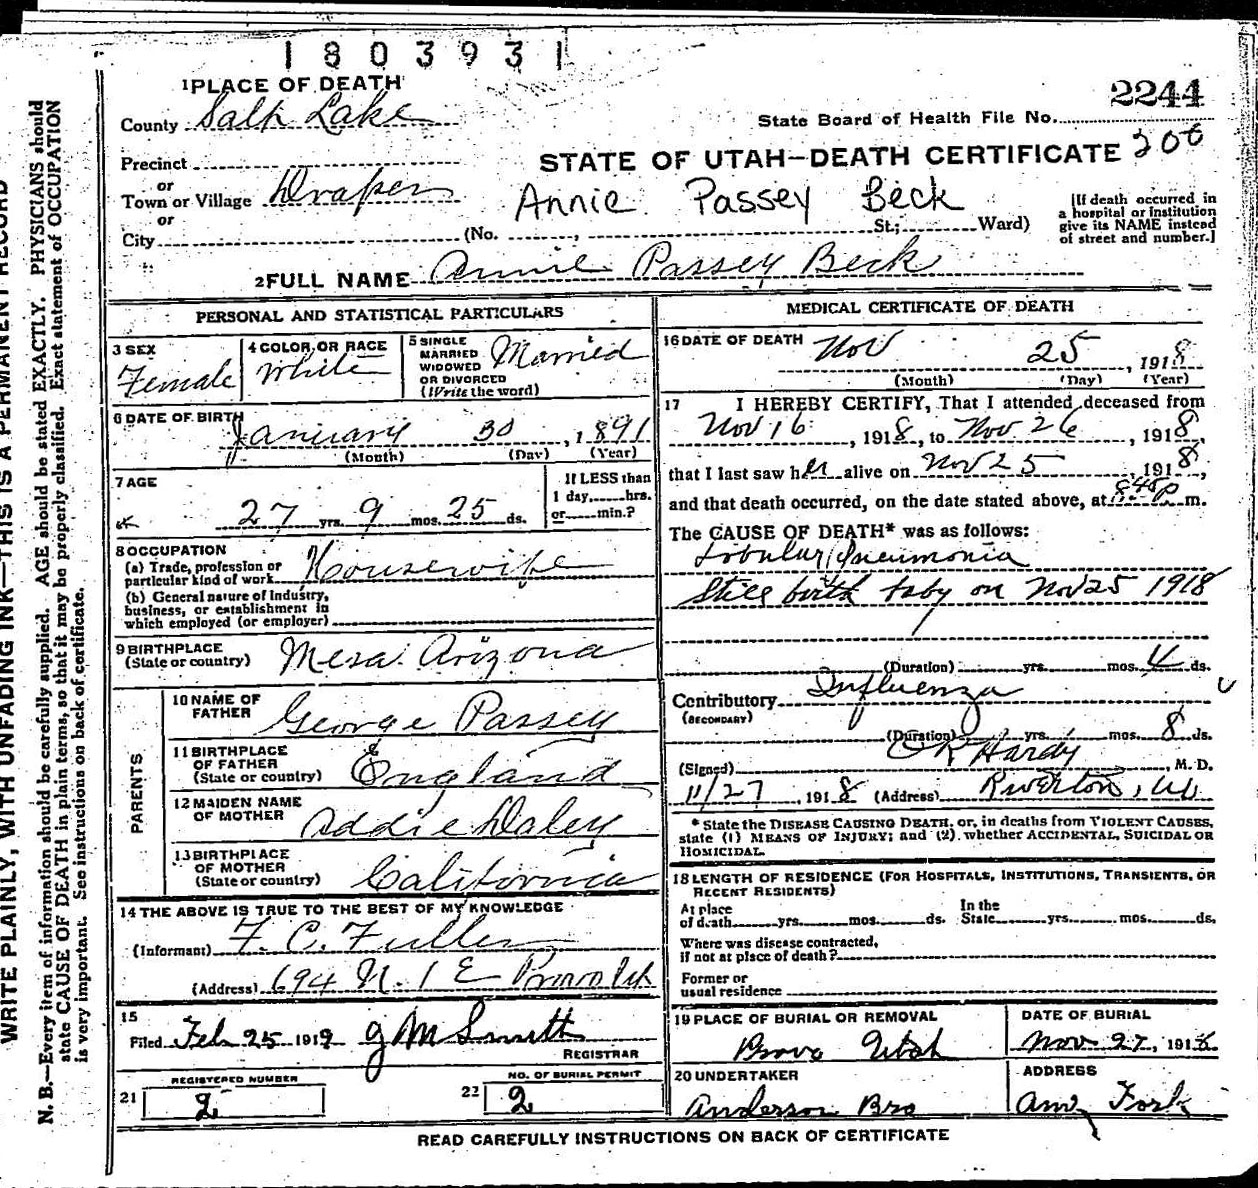 1803931
1 PLACE OF DEATH
2244
County Salt Lake
State Board of Health File No.
Precinct
STATE OF UTAH—DEATH CERTIFICATE 206
or
Town or Village Draper
Annie Passey Beck
[If death occurred in a hospital or institution give its NAME instead of street and number.]
or
City (No. , St.; Ward)
2 FULL NAME Annie Passey Beck
PERSONAL AND STATISTICAL PARTICULARS
3 SEX Female
4 COLOR OR RACE White
5 SINGLE MARRIED WIDOWED OR DIVORCED (Write the word) Married
6 DATE OF BIRTH January 30, 1891
(Month) (Day) (Year)
7 AGE
27 yrs. 9 mos. 25 ds.
If LESS than 1 day, hrs. or min.?
8 OCCUPATION
(a) Trade, profession or particular kind of work Housewife
(b) General nature of Industry, business, or establishment in which employed (or employer)
9 BIRTHPLACE (State or country) Mesa Arizona
PARENTS
10 NAME OF FATHER George Passey
11 BIRTHPLACE OF FATHER (State or country) England
12 MAIDEN NAME OF MOTHER Addie Daley
13 BIRTHPLACE OF MOTHER (State or country) California
14 THE ABOVE IS TRUE TO THE BEST OF MY KNOWLEDGE
(Informant) F. C. Fuller
(Address) 694 N. 1 E Provo Ut
15
Filed Feb 25 1919 J M Smith
REGISTRAR
REGISTERED NUMBER
21 2
NO. OF BURIAL PERMIT
22 2
MEDICAL CERTIFICATE OF DEATH
16 DATE OF DEATH Nov 25, 1918
(Month) (Day) (Year)
17 I HEREBY CERTIFY, That I attended deceased from
Nov 16, 1918, to Nov. 26, 1918,
that I last saw her alive on Nov 25, 1918,
and that death occurred, on the date stated above, at 8.45 P. m.
The CAUSE OF DEATH* was as follows:
Lobular Pneumonia
Still birth baby on Nov 25 1918
(Duration) yrs. mos. 4 ds.
Contributory Influenza
(SECONDARY)
(Duration) yrs. mos. 8 ds.
(Signed) Hardy, M. D.
11/27, 1918 (Address) Riverton, Ut
* State the DISEASE CAUSING DEATH, or, in deaths from VIOLENT CAUSES, state (1) MEANS OF INJURY; and (2) whether ACCIDENTAL, SUICIDAL OR HOMICIDAL.
18 LENGTH OF RESIDENCE (FOR HOSPITALS, INSTITUTIONS, TRANSIENTS, OR RECENT RESIDENTS)
At place of death yrs. mos. ds.
In the State yrs. mos. ds.
Where was disease contracted, if not at place of death?
Former or usual residence
19 PLACE OF BURIAL OR REMOVAL Provo Utah
DATE OF BURIAL Nov 27, 1918
20 UNDERTAKER Anderson Bro
ADDRESS Am. Fork
READ CAREFULLY INSTRUCTIONS ON BACK OF CERTIFICATE
WRITE PLAINLY, WITH UNFADING INK—THIS IS A PERMANENT RECORD
N. B.—Every item of information should be carefully supplied. AGE should be stated EXACTLY. PHYSICIANS should
state CAUSE OF DEATH in plain terms, so that it may be properly classified. Exact statement of OCCUPATION
is very important. See instructions on back of certificate.